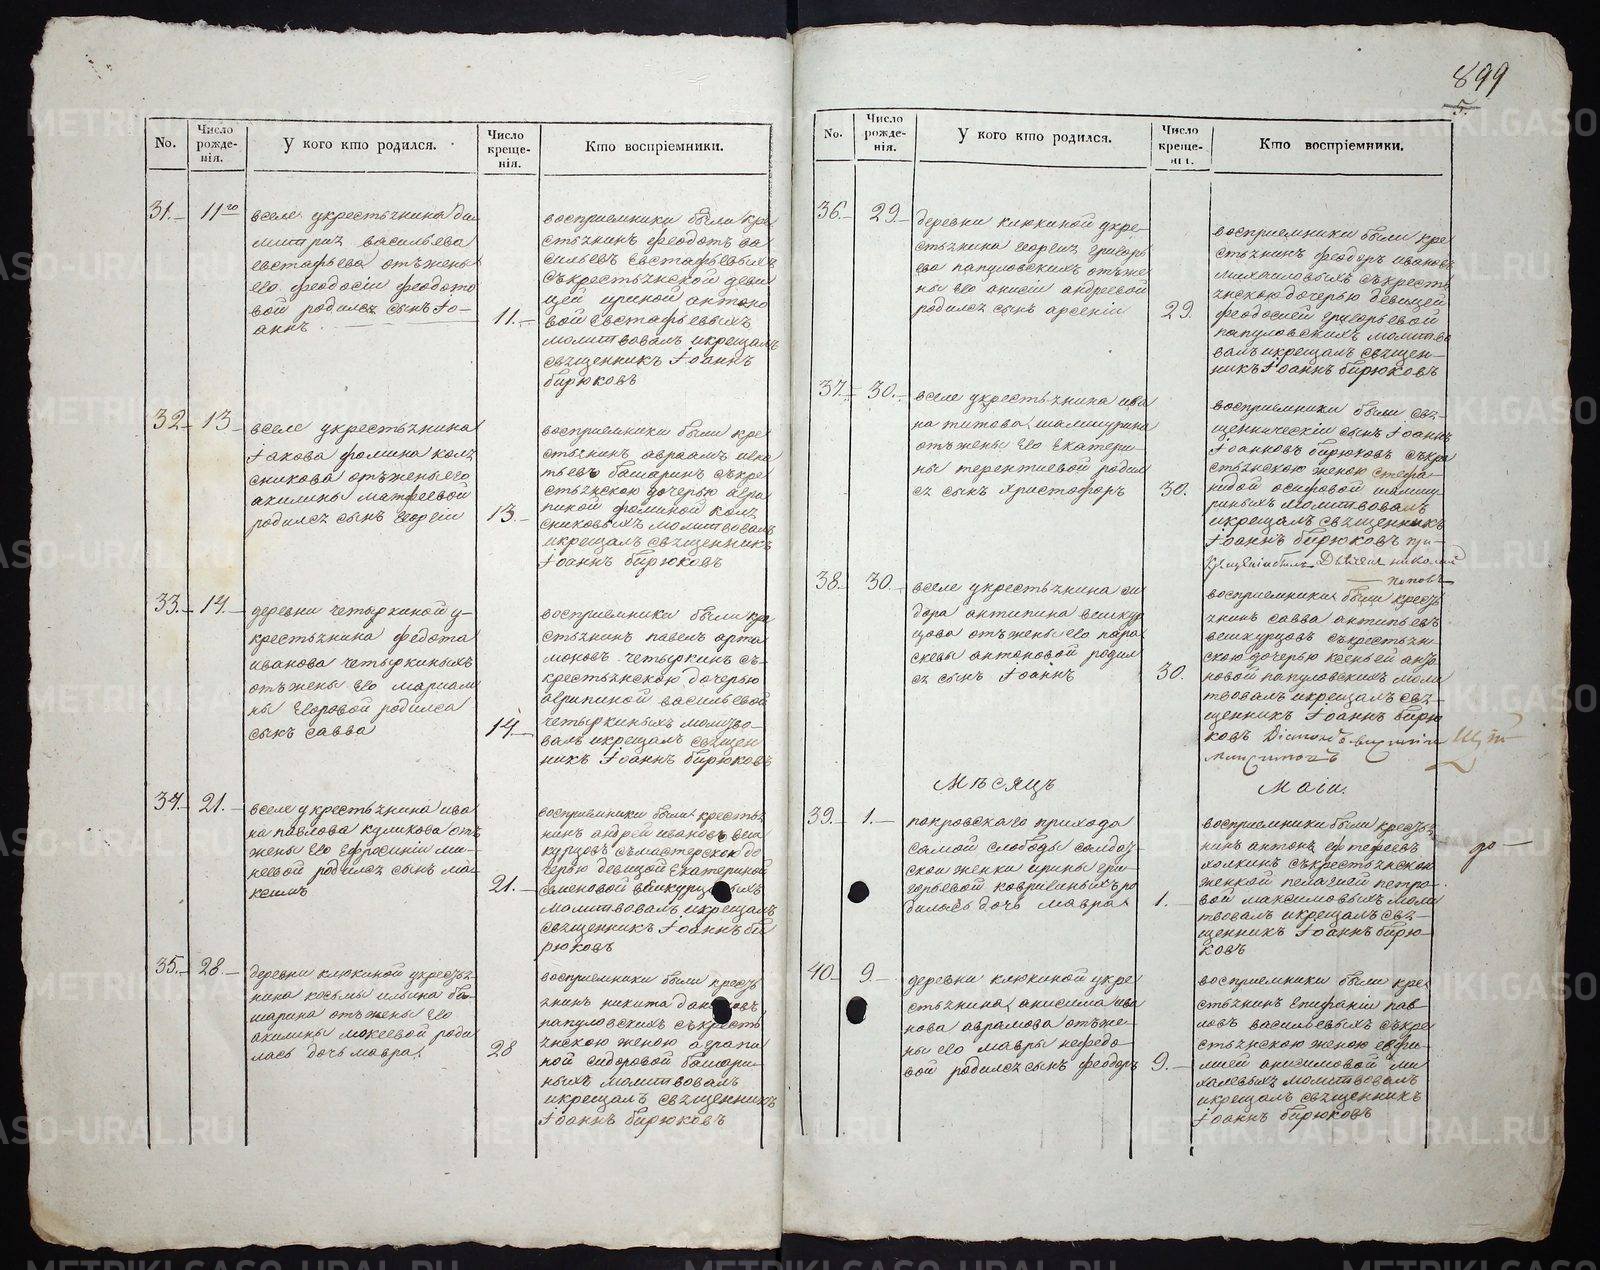 899
5.
No.
Число рожде-нія.
У кого кто родился.
Число креще-нія.
Кто воспріемники.
31.
11го
вселе укрестьянина ди
митрия васильева
евстафьева отъжены
его феодосіи феодото
вой родился сынъ Іо-
аннъ
11.
восприемники были кре
стьянинъ феодотъ ва
сильевъ евстафьевыхъ
съкрестьянской деви
цей ириной антоно
вой евстафьевыхъ
молитвовалъ икрещалъ
священникъ Іоаннъ
бирюковъ
32
13
вселе укрестьянина
Іакова фомина коля
сникова отъжены его
акилины матфеевой
родился сынъ Георгіи
13.
восприемники были кре
стьянинъ авраамъ игна
тьевъ башаринъ съкре
стьянскою дочерью агра
пиной фоминой коля
сниковыхъ молитвовалъ
икрещалъ священникъ
Іоаннъ бирюковъ
33.
14.
деревни четыркиной у-
крестьянина федота
иванова четыркиныхъ
отъжены его мариам
ны егоровой родился
сынъ савва
14.
восприемники были кре
стьянинъ павелъ арта
моновъ четыркинъ съ-
крестьянскою дочерью
агрипиной васильевой
четыркиныхъ молитво-
валъ икрещалъ священ
никъ Іоаннъ бирюковъ
34.
21.
вселе укрестьянина ива
на павлова куликова отъ
жены его ефросиніи ми-
неевой родился сынъ ма
ксимъ
21.
восприемники были крестья
нинъ андрей ивановъ веш
курцовъ съмастерскою до
черью девицой екатериной
семеновой вешкурцовыхъ
молитвовалъ икрещалъ
священникъ Іоаннъ би
рюковъ
35.
28.
деревни клюкиной укрестья-
нина косьмы ильина ба-
шарина отъжены его
акилины мокеевой роди
лась дочь мавра
28
восприемники были кресть
янинъ никита
папуловскихъ съкресть
янскою женою аграпи
ной сидоровой башари
ныхъ молитвовалъ
икрещалъ священникъ
Іоаннъ бирюковъ
No.
Число рожде-нія.
У кого кто родился.
Число креще-нія.
Кто воспріемники.
36.
29
деревни клюкиной укре-
стьянина Георгия григорь
ева папуловскихъ отъже
ны его анисіи андреевой
родился сынъ арсеніи
29.
восприемники были кре
стьянинъ феодоръ ивановъ
михаиловыхъ съкресть
янскою дочерью девицей
феодосией григорьевой
папуловскихъ молитво
валъ икрещалъ священ-
никъ Іоаннъ бирюковъ
37.
30.
вселе укрестьянина ива
на титова шамшурина
отъжены его екатери-
ны терентиевой родил
ся сынъ христофоръ
30.
восприемники были свя-
щенническіи сынъ Іоаннъ
Іоанновъ бирюковъ съкре
стьянскою женою стефа-
нидой осиповой шамшу
риныхъ молитвовалъ
икрещалъ священникъ
Іоаннъ бирюковъ при
крещеніибылъ Дьячекъ николай
поповъ
38.
30.
вселе укрестьянина си
дора антипина вешкур
цова отъжены его пара
скевы антоновой родил
ся сынъ Іоаннъ
30.
восприемники были кресть
янинъ савва антипьевъ
вешкурцовъ съкрестьян
скою дочерью ксеньей анто
новой папуловскихъ моли
твовалъ икрещалъ свя-
щенникъ Іоаннъ бирю
ковъ
Мѣсяцъ Маіи.
39.
1.
покровскаго прихода
самой слободы солдат
ской женки ирины гри
горьевой ковригиныхъ ро
дилась дочь мавра
1.
восприемники были крестья
нинъ антонъ ефтефеевъ
холкинъ съкрестьянской
женкой пелагией петро-
вой максимовыхъ моли
твовалъ икрещалъ свя-
щенникъ Іоаннъ бирю-
ковъ
40
9
деревни клюкиной укре
стьянина анисима ива
нова аврамова отъже-
ны его мавры нефедо-
вой родился сынъ феодоръ
9.
восприемники были кре
стьянинъ епифаніи пав-
ловъ васильевыхъ съкре
стьянскою женою евфи-
мией анисимовой ми
халевыхъ молитвовалъ
икрещалъ священникъ
Іоаннъ бирюковъ
METRIKI.GASO-URAL.RU